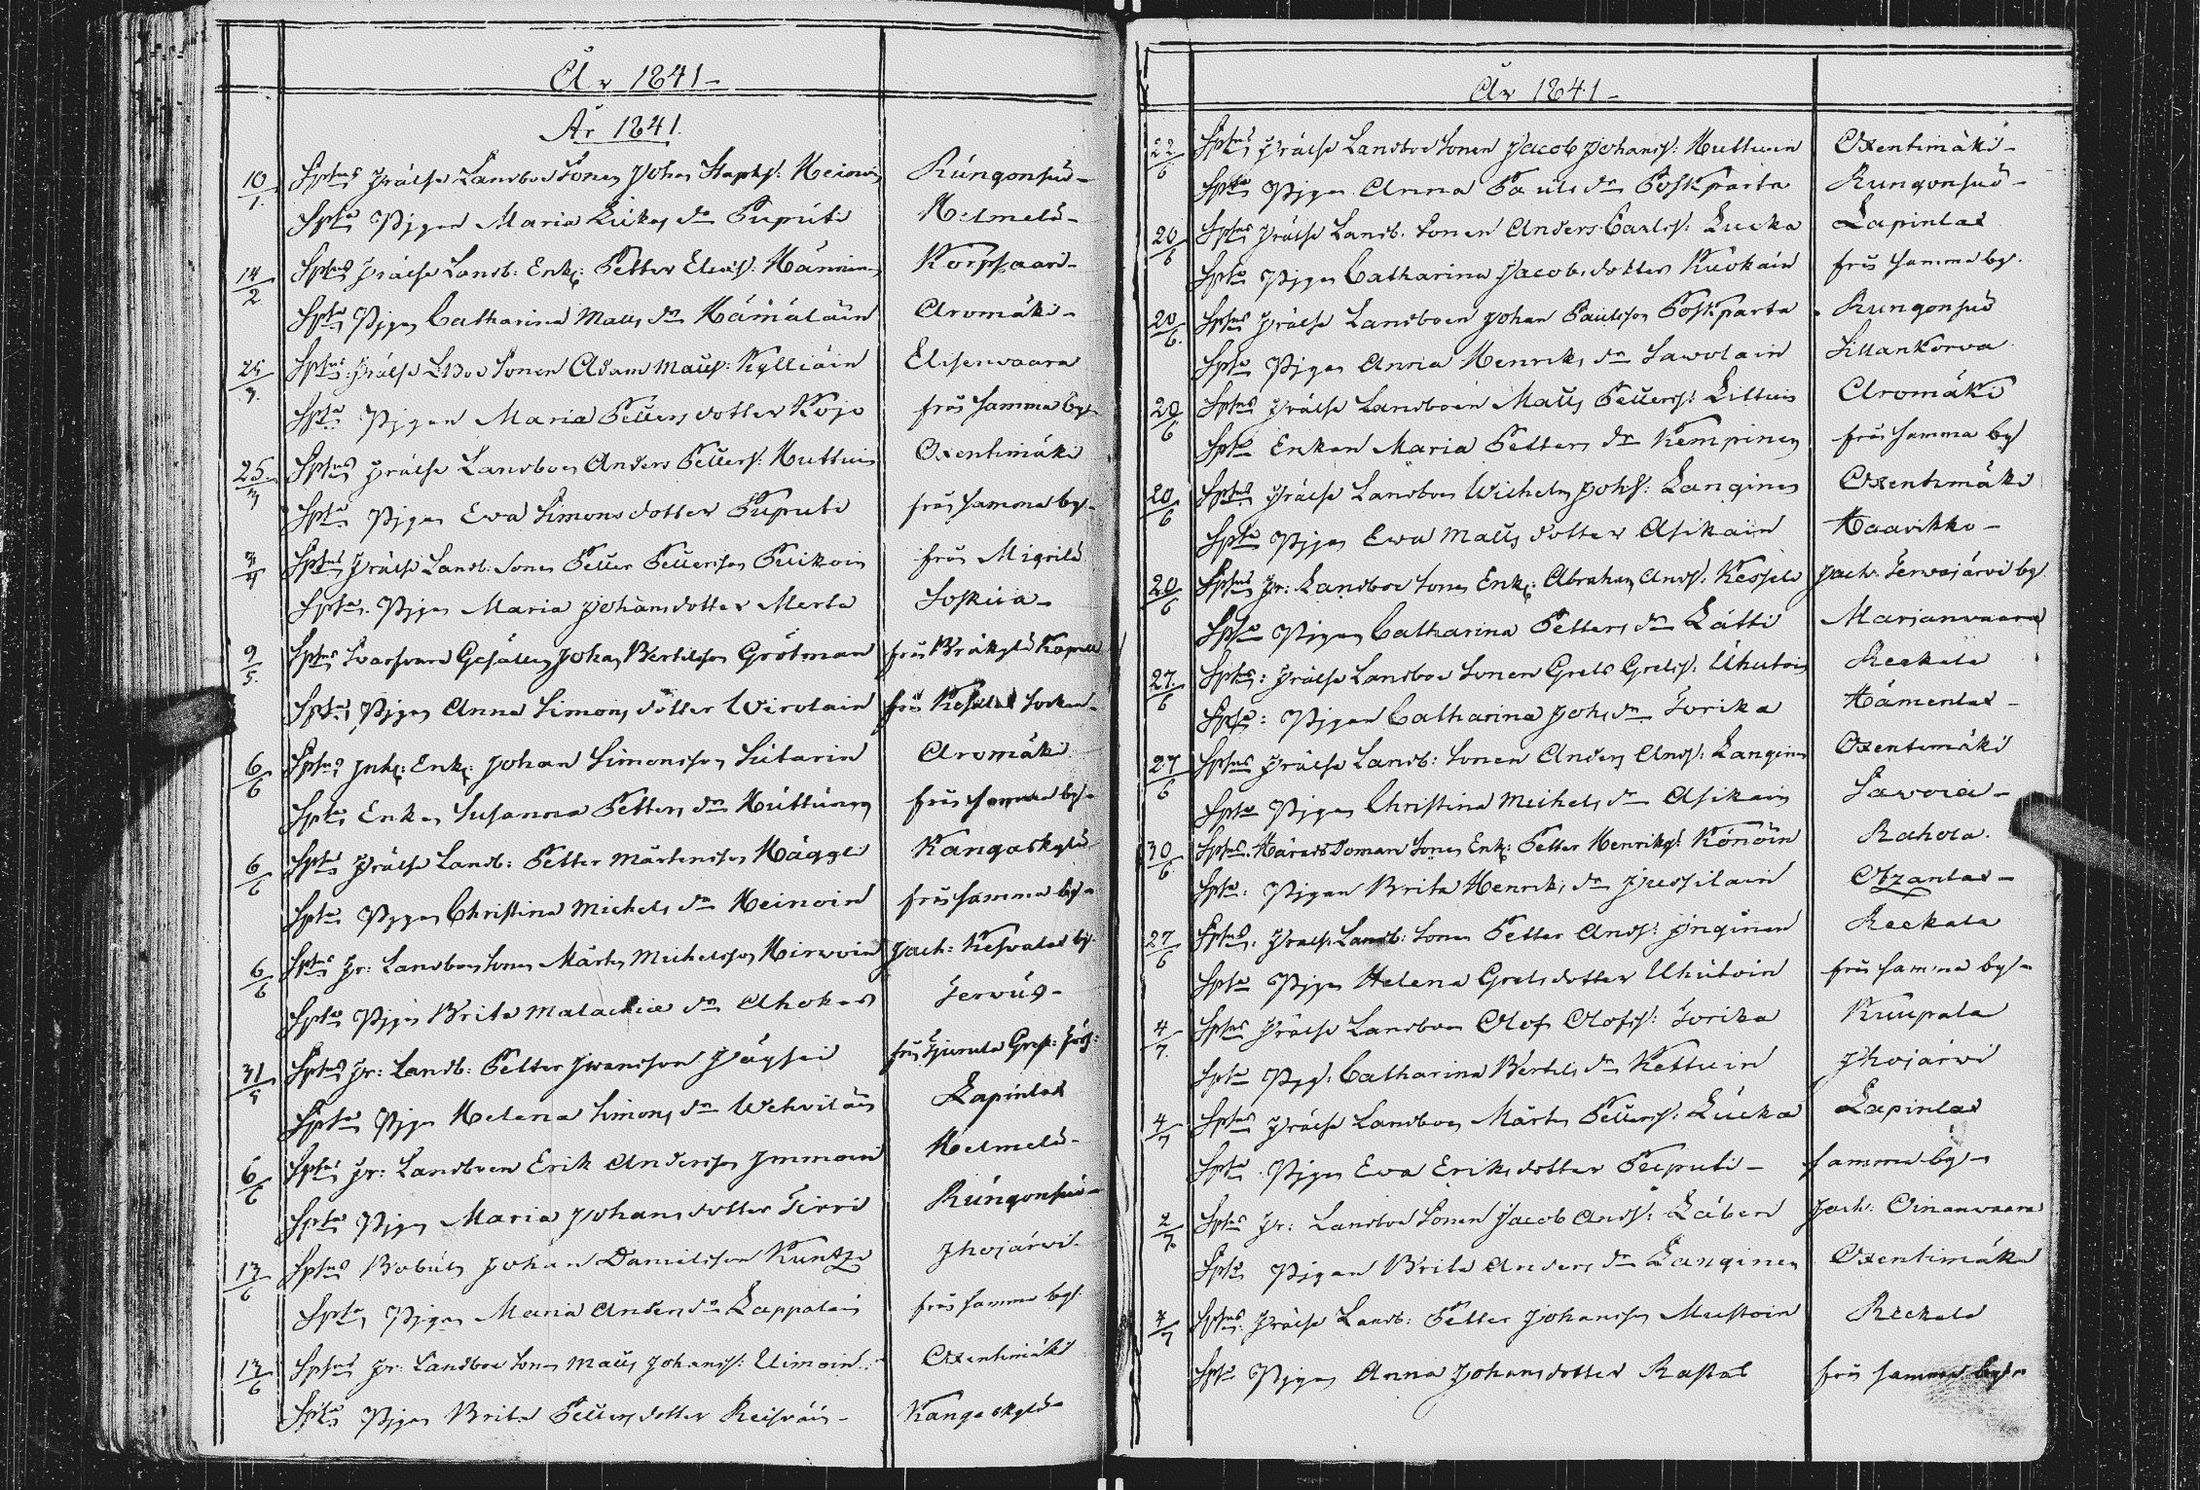 År 1841-
År 1841.
10/1. Sptus Frälse Landboe Sonen Johan Staphs: Heinoin Rungonsuo-
Spta Pigan Maria Ericks dr Puputi Helmelä-
14/2 Sptus Frälse Landb: Enkl: Petter Eliæs: Hännin Korpsaari-
Spta Pigan Catharina Matts dr Hämäläin Aromäki-
25/3. Sptus Frälse LBoe Sonen Adam Matts: Kylliäin Elisenvaara
Spta Pigan Maria Petters dotter Kojo från samma by-
25/3 Sptus Frälse Landboen Anders Petters: Huttuin Oxentimäki
Spta Pigan Eva Simons dotter Puputi från samma by-
4/4 Sptus Frälse Landb: Sonen Petter Pettersson Puikoin från Migrilä
Spta Pigan Maria Johans dotter Merta Soskua-
9/5. Sptus Svarfvare Gesällen Johan Bertilsson Grötman från Bräkylä Kapell
Spta Pigan Anna Simons dotter Wirolain från Socken-
6/6 Sptus Inh: Enkl: Johan Simonsson Sutarin Aromäki
Spta Enkan Susanna Petters dr Huttunen från samma by-
6/6 Sptus Frälse Landb: Petter Mårtensson Häggli Kangaskylä
Spta Pigan Christina Michels dr Heinoin från samma by-
6/6 Sptus Fr: Landboens Sonen Mårten Michelsson Hirwoin Jack: Kesvalax by.
Spta Pigan Brita Malachiæ dr Ahokas Tervus-
31/5 Sptus Fr: Landb: Petter Iwansson Jägsei
Spta Pigan Helena Simons dr Wehviläin Lapinlax
6/6 Sptus Fr: Landboen Erik Andersson Immoin Helmelä-
Spta Pigan Maria Johans dotter Tirri Rungonsuo-
13/6 Sptus Bobuln Johan Danielsson Kuntze Ihojärvi-
Spta Pigan Maria Anders dr Lappalain från samma by.
13/6 Sptus Fr: Landboe Sonen Matts Johanss: Uimoin Oxentimäki
Spta Pigan Brita Petters dotter Reisväin- Kangaskylä-
År 1841-
22/6 Sptus Frälse Landboe Sonen Jacob Johanss: Huttuin Oxentimäki-
Spta Pigan Anna Pauls dr Poskparta Rungonsuo-
20/6 Sptus Frälse Landb. Sonen Anders Carlss: Lucka Lapinlax
Spta Pigan Catharina Jacobs dotter Kuokain från samma by.
20/6. Sptus Frälse Landboen Johan Paulsson Poskparta Rungonsuo
Spta Pigan Anna Henriks dr Sawolain Sillankorva
20/6 Sptus Frälse Landboen Matts Petterss: Littuin Aromäki
Spta Enkan Maria Petters dr Kempinen från samma by
20/6 Sptus Frälse Landboen Wilhelm Johs: Langinen Oxentimäki
Spta Pigan Ewa Matts dotter Asikain Haavikko-
20/6 Sptus Fr: Landboe Sonen Enkl: Abraham Ands: Kesseli Jack: Tervajärvi by
Spta Pigan Catharina Petters dr Lätti Marjanvaara
27./6 Sptus: Frälse Landboe Sonen Grels Grelss: Uhutoin Reekala
Spta: Pigan Catharina Johs dr Torika Hämenlax-
27/6 Sptus Frälse Landb: Sonen Anders Ands: Langinen Oxentimäki
Spta Pigan Christina Michels dr Asikain Savoia-
30/6 Sptus. Häradsdomare Sonen Enkl: Petter Henriks: Könöin Rahola.
Spta: Pigan Brita Henriks dr Jussilain Otzanlax-
27/6 Sptus. Frälse Landb: Sonen Petter Ands: Inginen Reekala
Spta Pigan Helena Grels dotter Uhutoin från samma by-
4/7. Sptus Frälse Landboen Olof Olofss: Torika Kuupala
Spta Pig: Catharina Bertils dr Kettuin Ihojärvi
4/7 Sptus Frälse Landboen Mårten Petterss: Lucka Lapinlax
Spta Pigan Eva Eriks dotter Puputi- samma by-
4/7. Sptus Fr: Landboe Sonen Jacob Ands: Läben Jack: Oinanvaara
Spta Pigan Brita Anders dr Langinen Oxentimäki
4/7 Sptus: Frälse Landb: Petter Johansson Mustoin Reekala
Spta Pigan Anna Johans dotter Rastas från samma by-